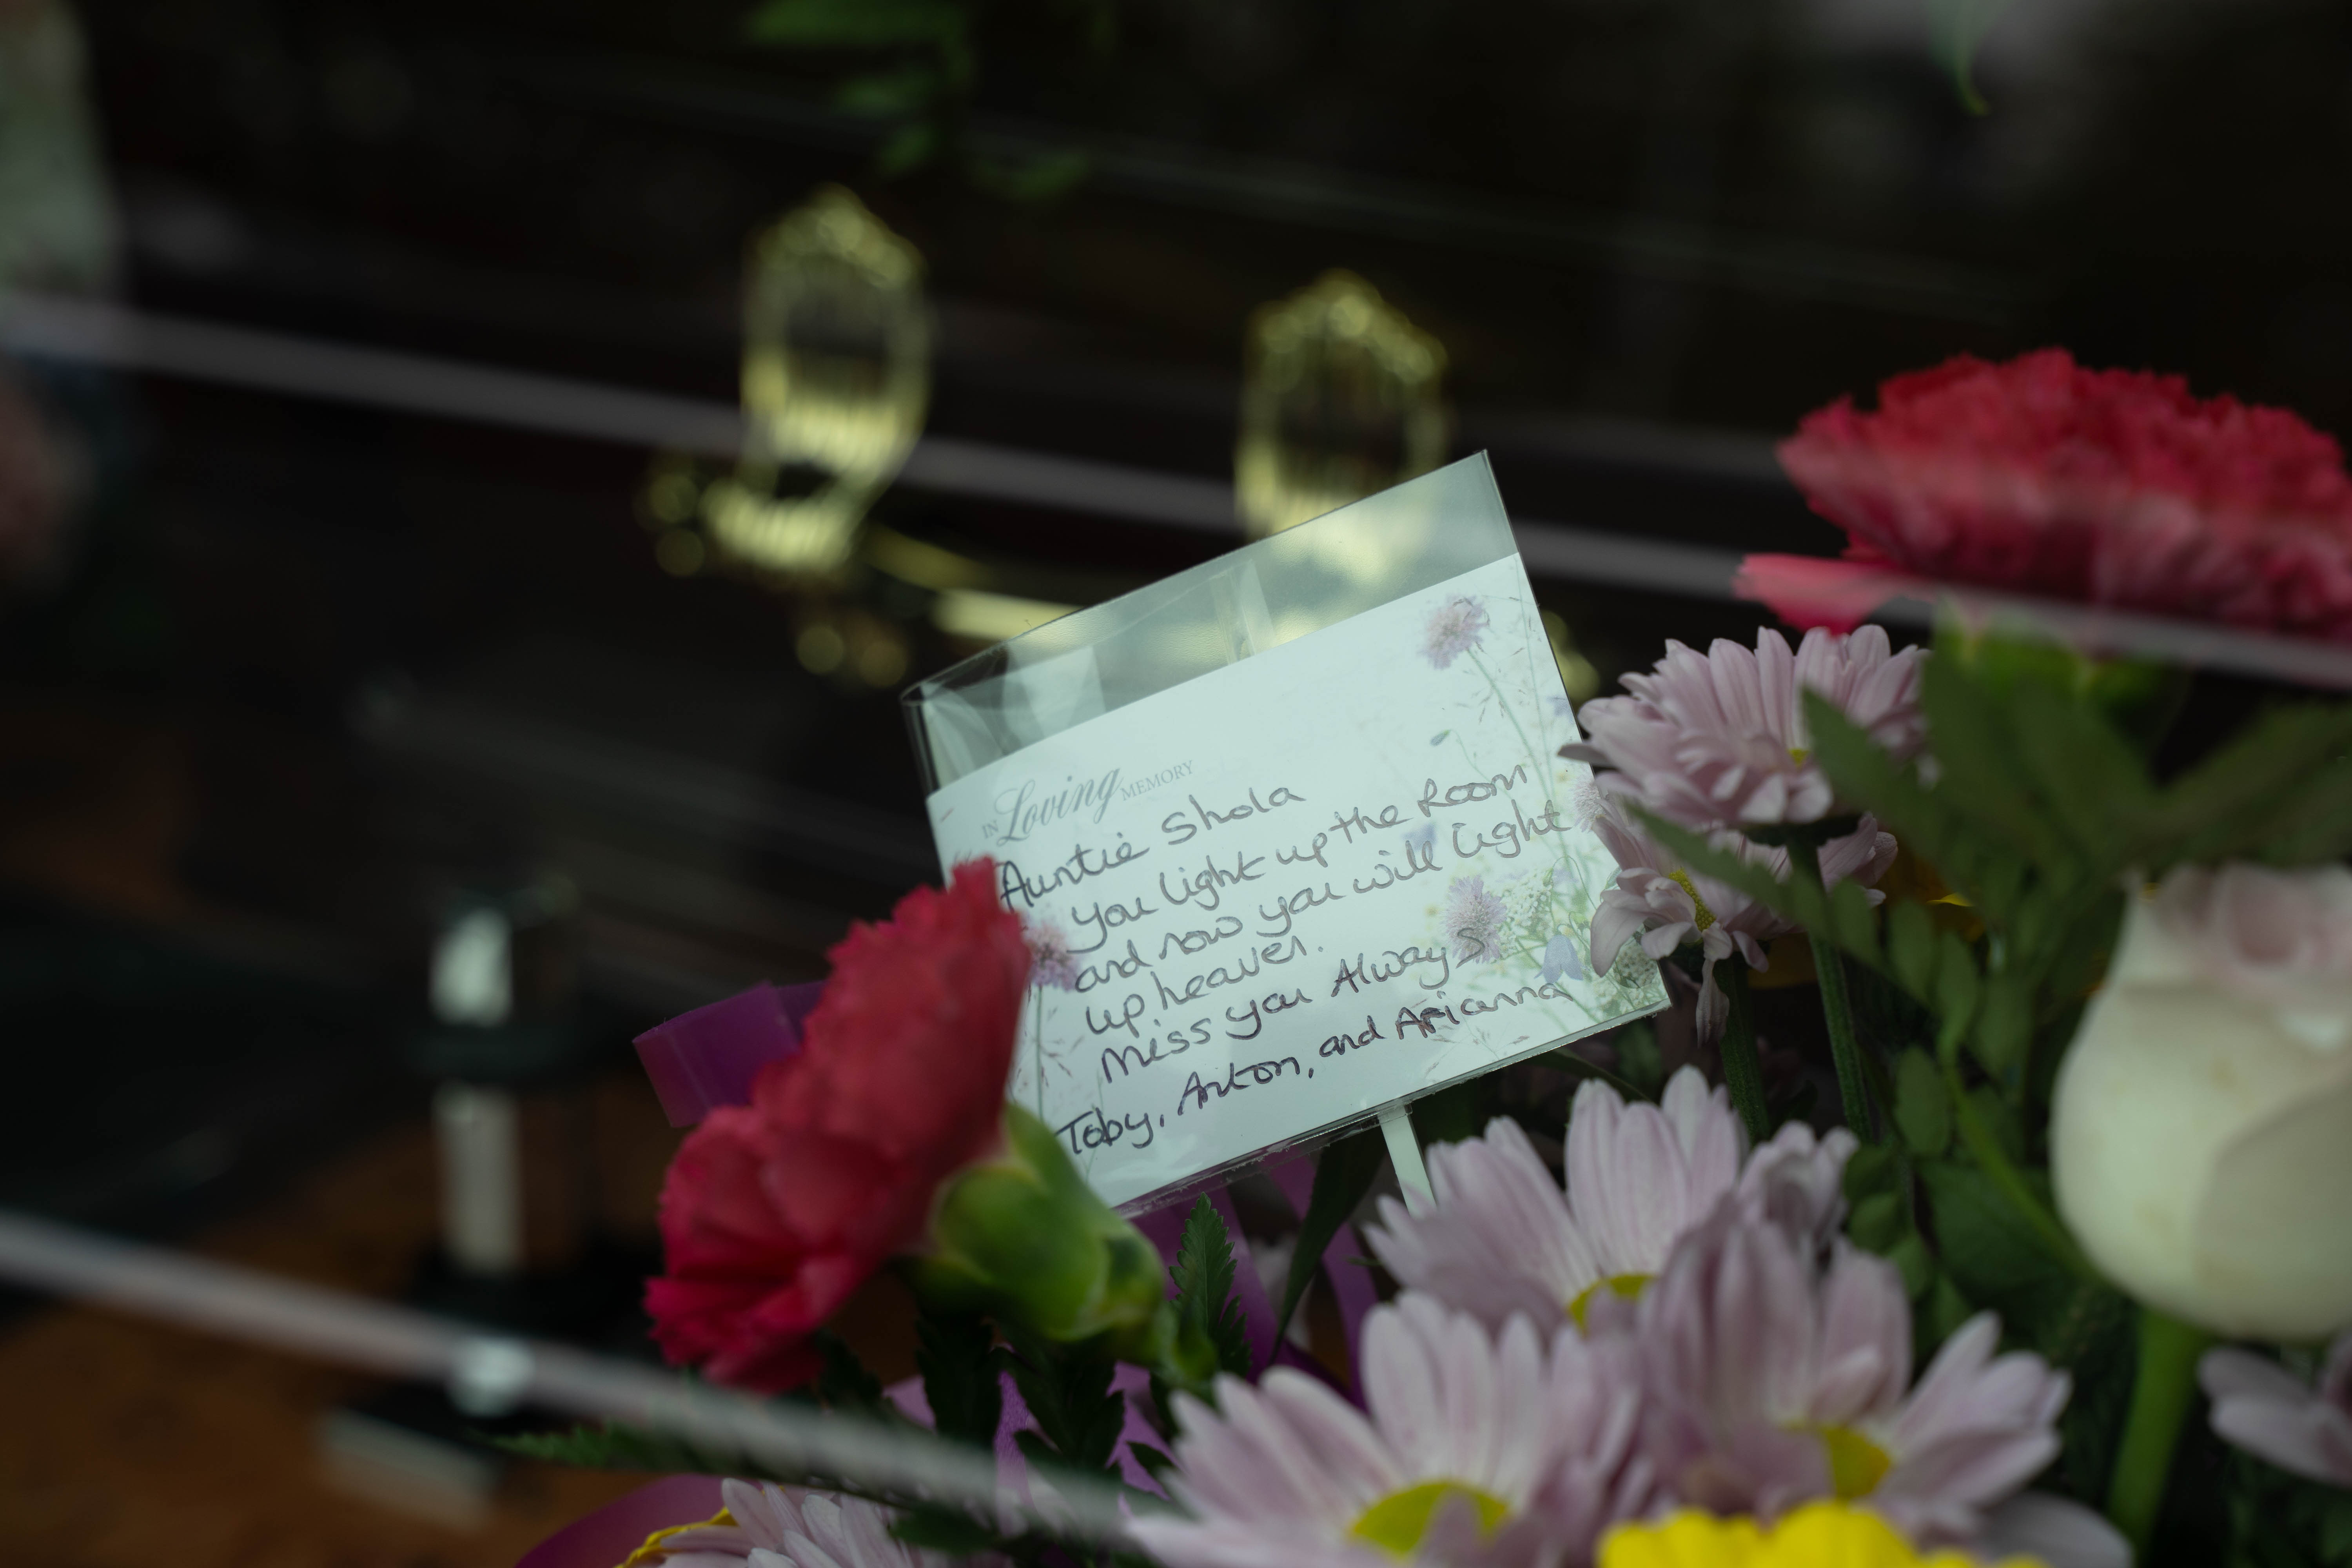 IN Loving MEMORY
Auntie Shola
you light up the Room
and now you will light
up heaven.
Miss you Always
Toby, Anton, and Arianna